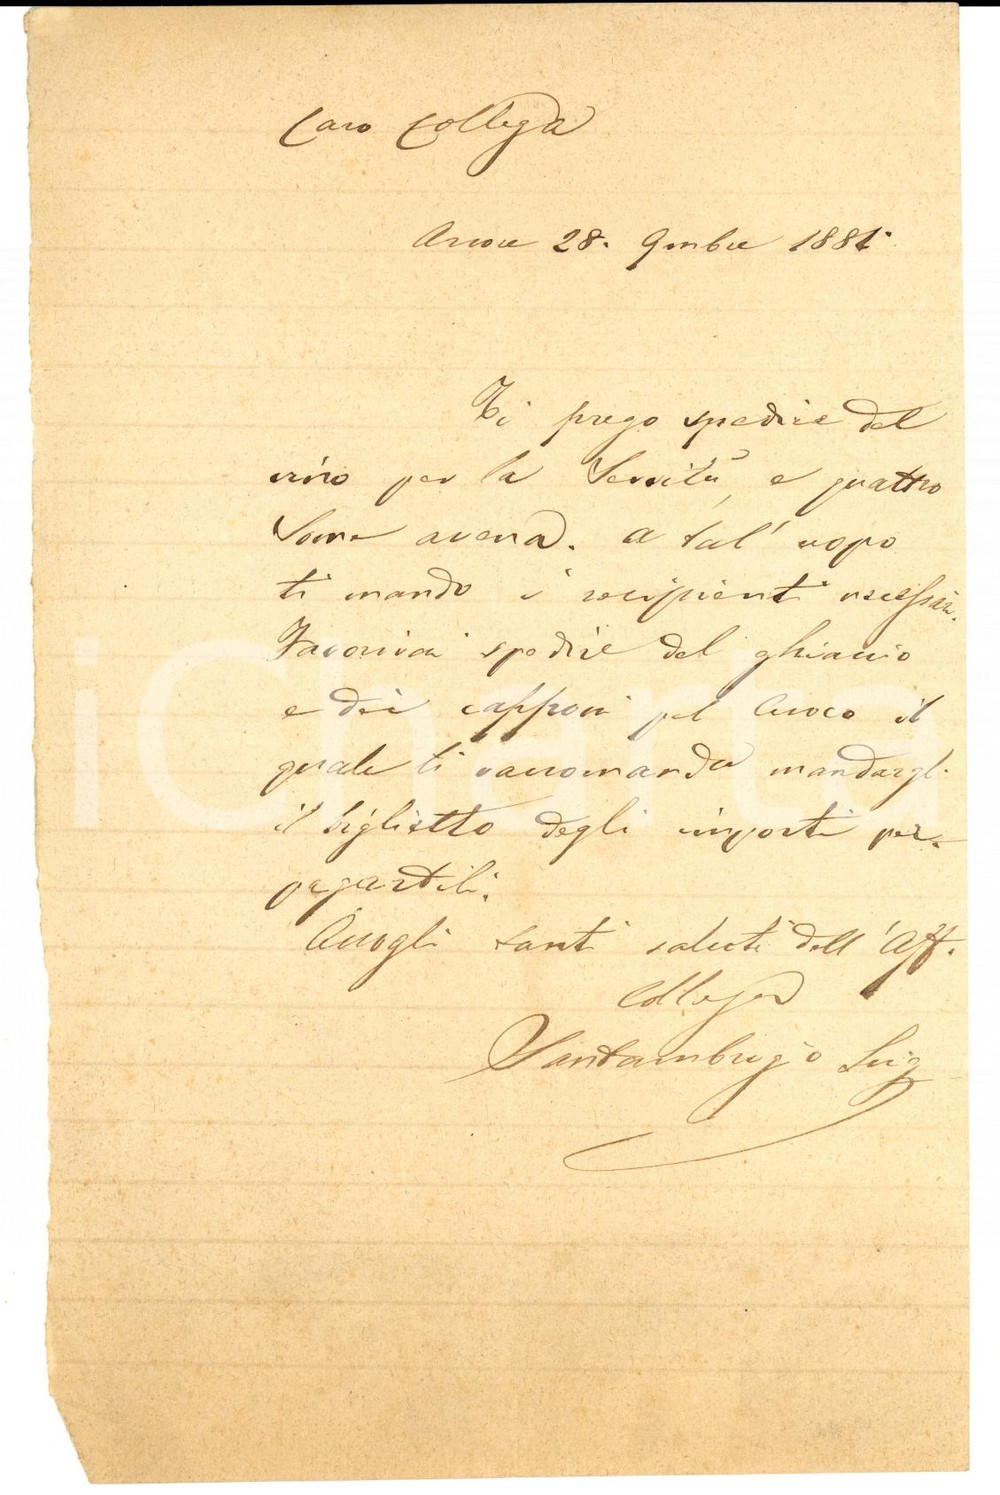 Caro Collega
Arcore 28. 9mbre 1881
Ti prego spedire del
vino per la Servitù, e quattro
Some avena. A tal' uopo
ti mando i recipienti necessari.
Favorirai spedire del ghiaccio
e dei capponi pel Cuoco il
quale ti raccomando mandargli
il biglietto degli importi per
pagartili.
Accogli tanti saluti dell'Aff.
Collega
Santambrogio Luig
iCharta